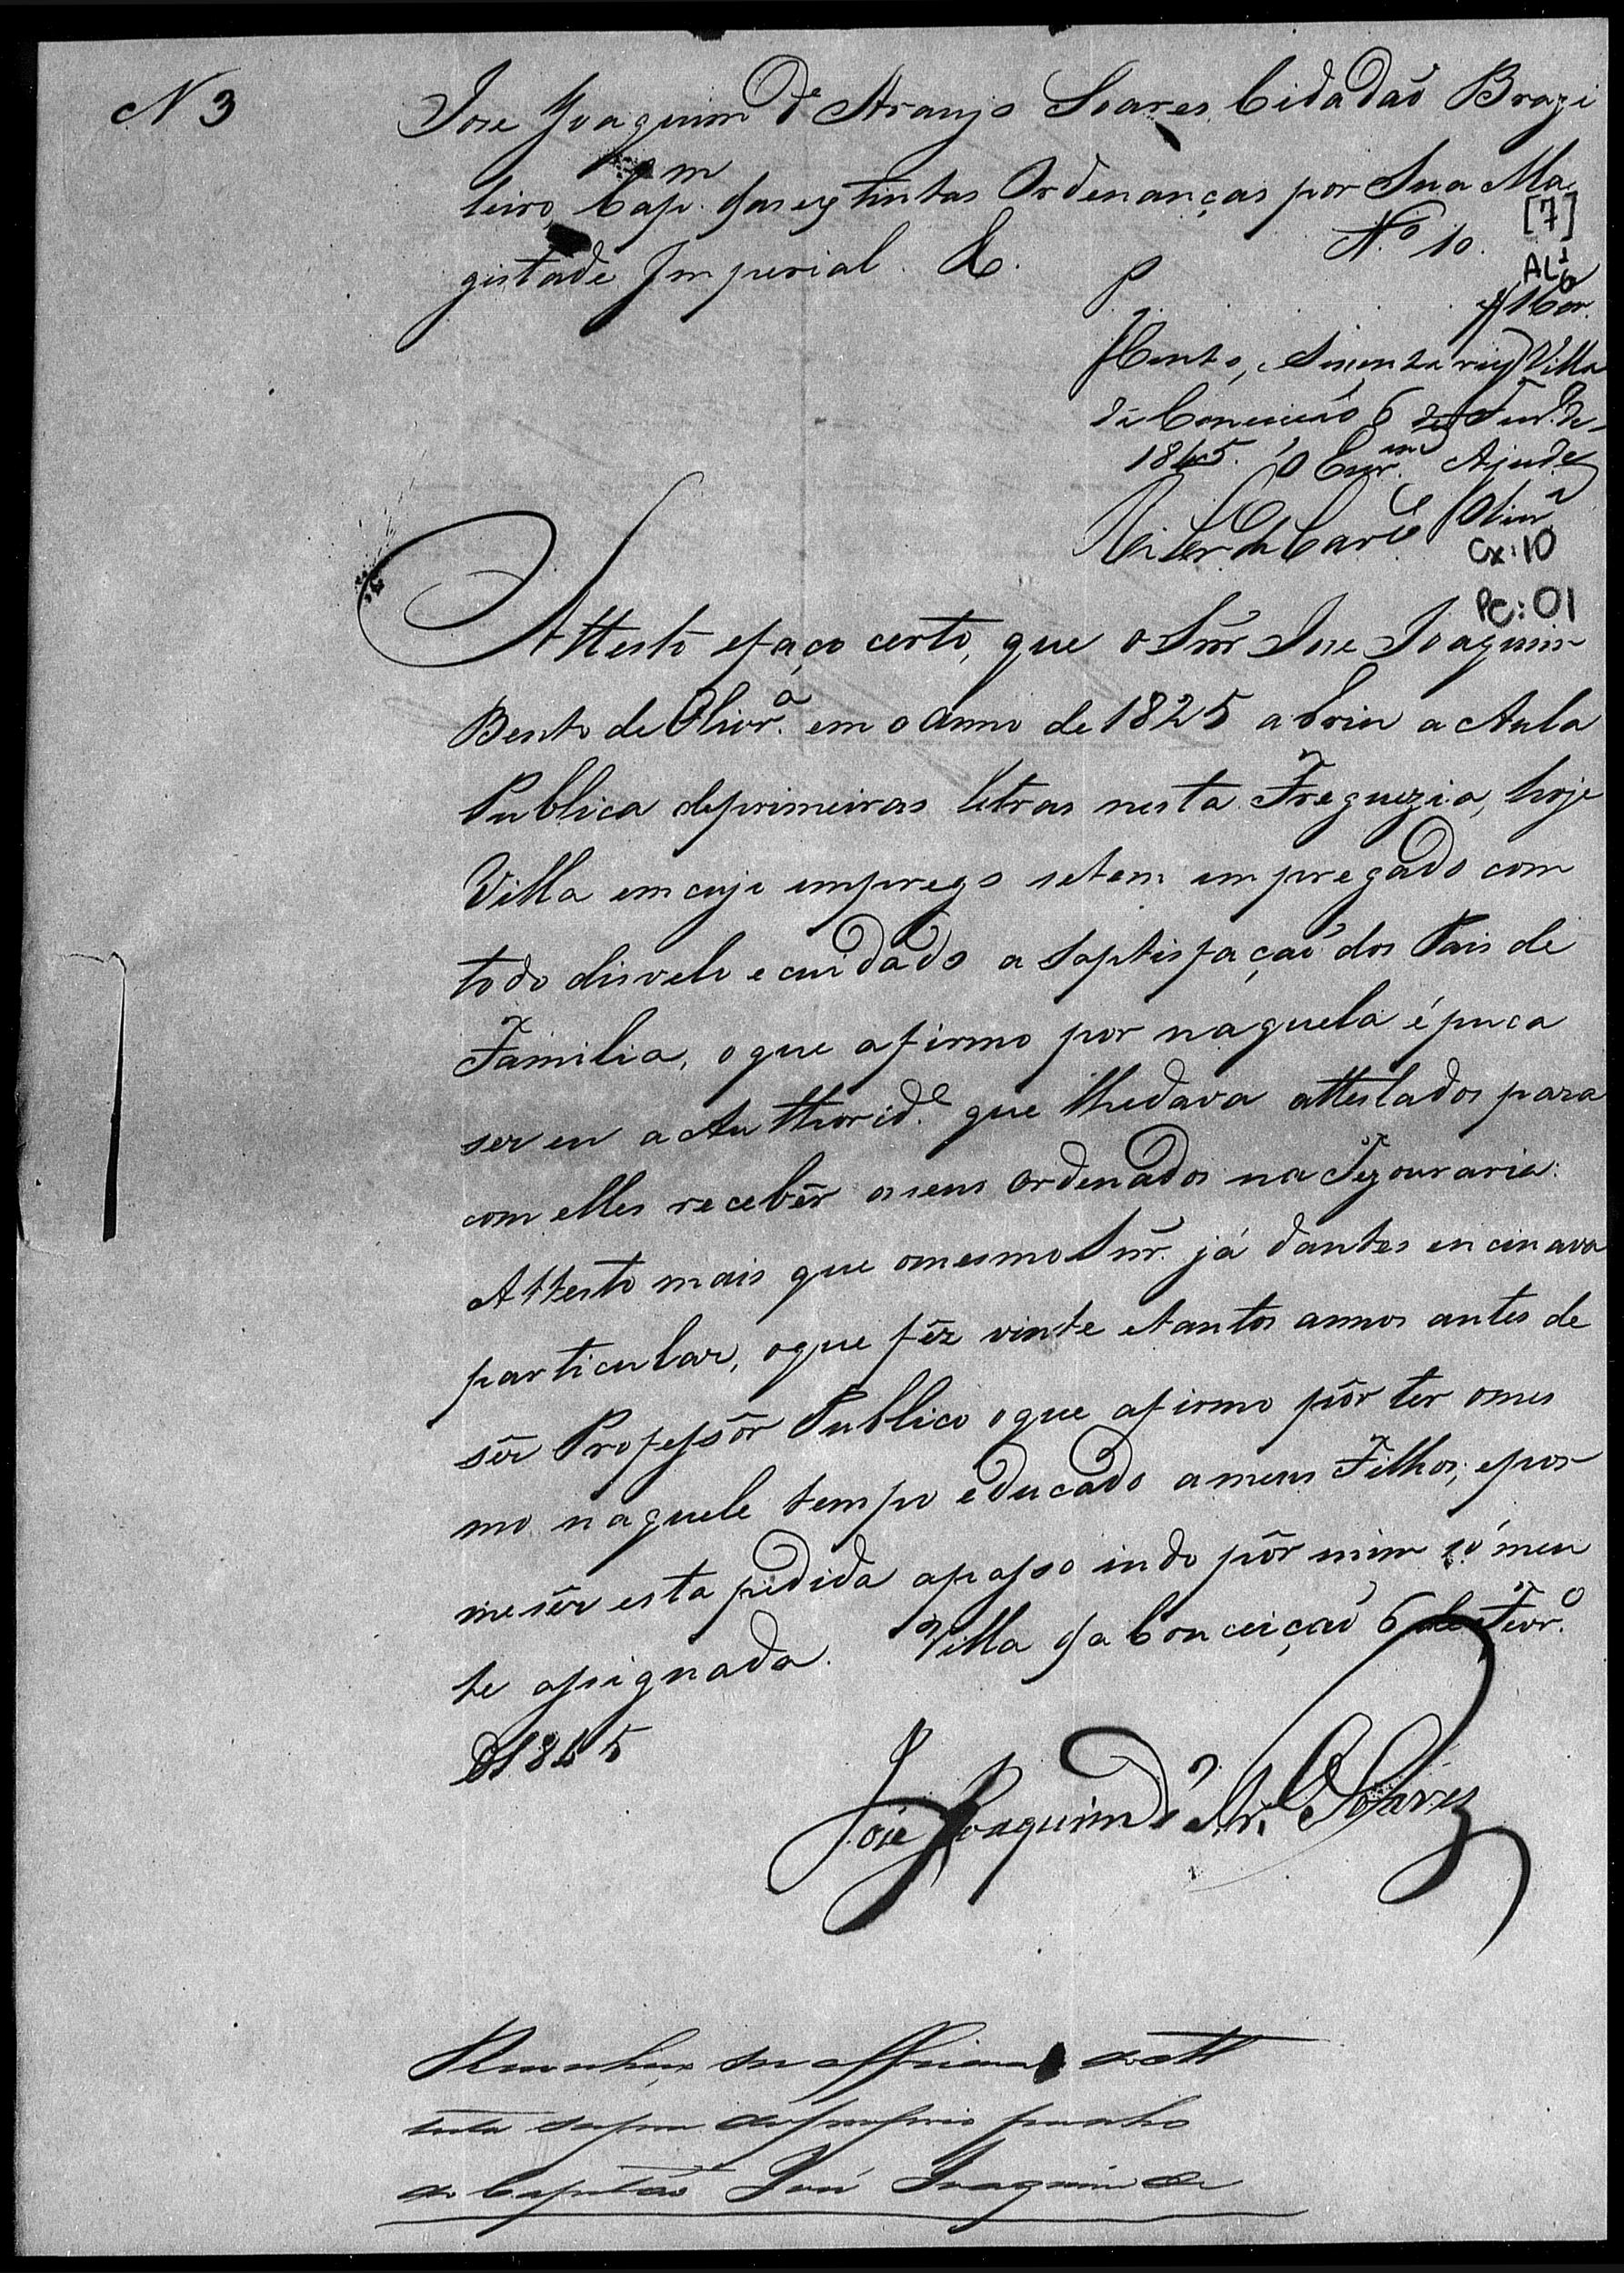 N 3
Jose Joaquim de Araujo Soares Cidadaõ Brazi
leiro, Capm. das extintas Ordenanças por Sua Ma
gestade Imperial. &.
[7]
No 10.
AL1
P 160 r.
Cento, Secenta reis Villa
da Conceicaõ 6 de Fevr. de
1845. O Escr.am Ajude
Cx:10
Pc:01
Attesto efaço certo, que o Snr Jose Joaquim
Bento de Olivr.a em o anno de 1825 abriu a Aula
Publica deprimeiras letras nesta Freguezia, hoje
Villa em cujo emprego setem empregado com
todo disvelo e cuidado a saptisfaçaõ dos Pais de
Familia, oque afirmo por naquela épuca
ser eu a Authorid.e que lhedava attestados para
com elles recebêr oseus Ordenados na Tezouraria:
Attesto mais que omesmo Snr. já dantes encinava
particular, oque fêz vinte etantos annos antes de
sêr Profeßôr Publico oque afirmo pôr ter omes
mo naquele tempo educado a meus Filhos; epor
me sêr esta pedida apaßo indo pôr mim sómen
te aßignada. Villa da Conceiçaõ 6 de Fevr.o
D1845
José Joaquim d' Ar.o Soares
Reconheço ser a firma do att
testa supra do proprio punho
do Capitão José Joaquim de